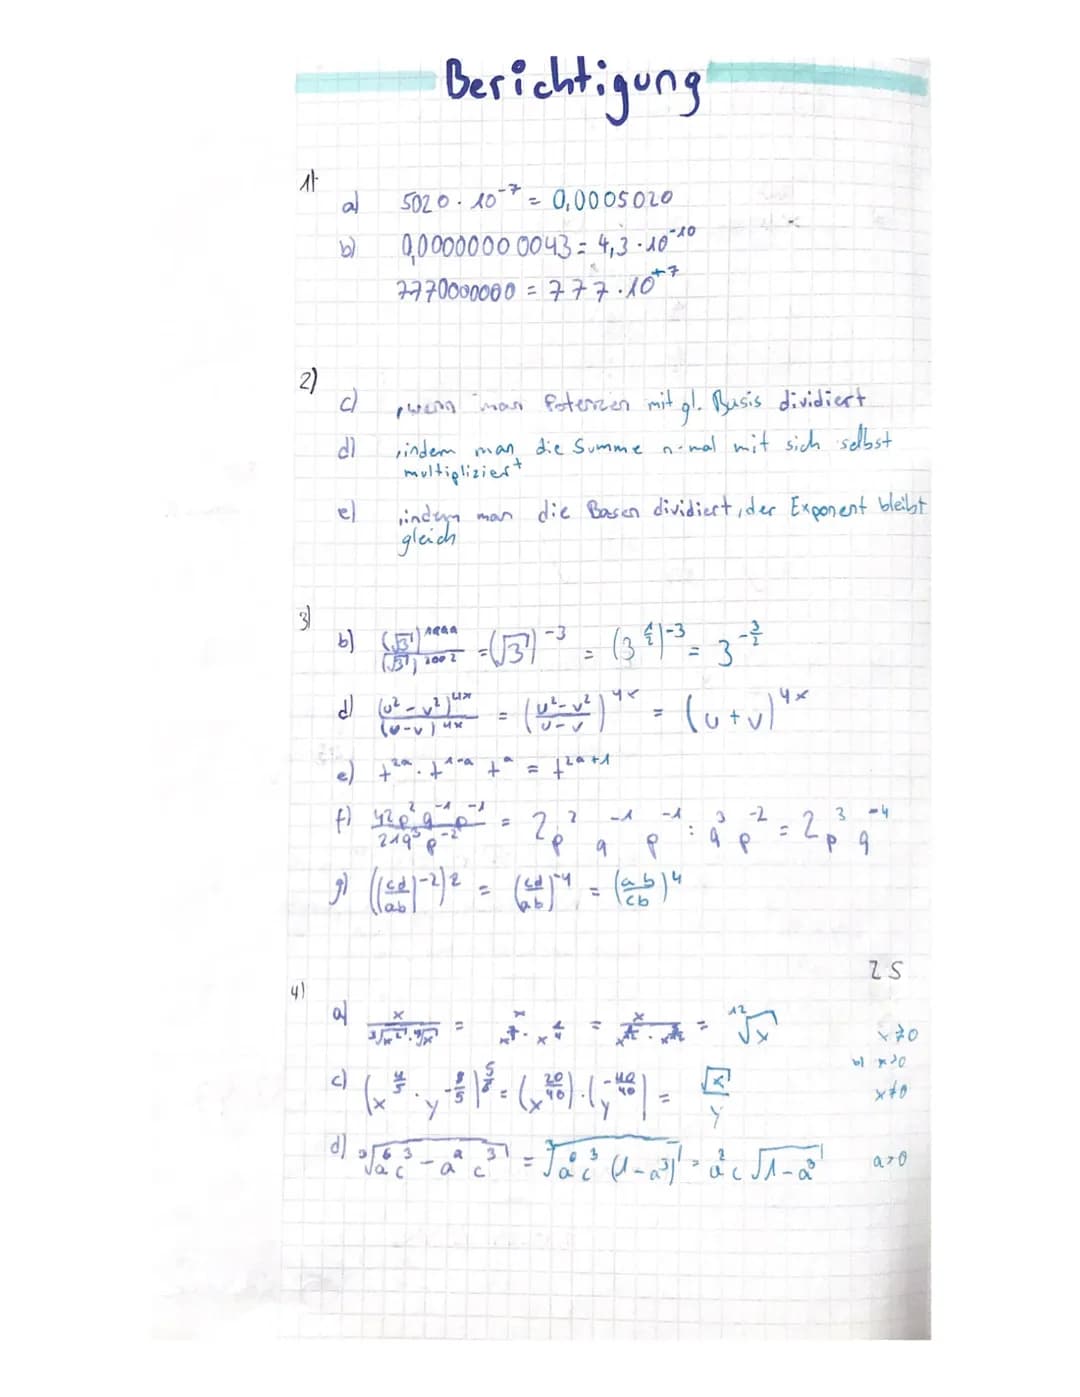 Berichtigung
1)
a) 5020 · 10^-7 = 0,0005020
b) 0,00000000043 = 4,3 · 10^-10
7770000000 = 777 · 10^+7
2)
c) , wenn man Potenzen mit gl. Basis dividiert
d) , indem man die Summe n-mal mit sich selbst
multipliziert
e) , indem man die Basen dividiert, der Exponent bleibt
gleich
3)
b) (√3)^1999 / (√3)^2002 = (√3)^-3 = (3^(1/2))^-3 = 3^(-3/2)
d) (u² - v²)^4x / (u-v)^4x = ((u² - v²)/(u-v))^4x = (u+v)^4x
e) t^2a · t^1-a t^a = t^2a+1
f) 42p²q^-1 p^-1 / 21q³p^-2 = 2p² q^-1 p^-1 : q³ p^-2 = 2p³ q^-4
g) ((cd/ab)^-2)^2 = (cd/ab)^-4 = (ab/cb)^4
2S
4)
a) = = = ¹²√x x≠0
b) x>0
c) = (x^(20/40)) · (y^(-40/40)) = √x / y x≠0
d) = ³√(a⁶c³(1-a³)) = a²c √(1-a³) a>0